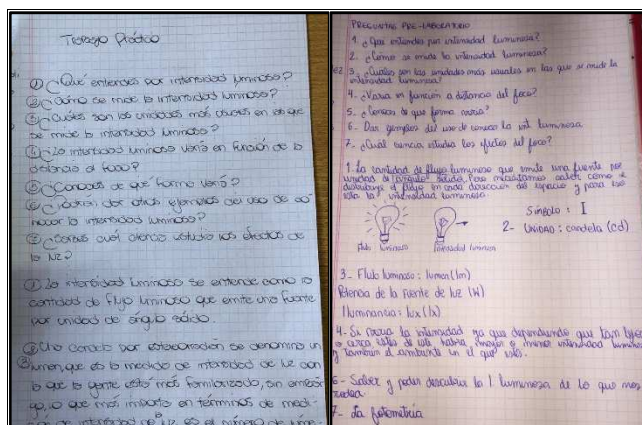 Trabajo Práctico
① ¿Qué entiendes por intensidad luminosa?
② ¿Cómo se mide la intensidad luminosa?
③ ¿Cuáles son las unidades más usuales en las que
se mide la intensidad luminosa?
④ ¿La intensidad luminosa varía en función de la
distancia al foco?
⑤ ¿Conoces de qué forma varía?
⑥ ¿Podrían dar otros ejemplos del uso de co
nocer la intensidad luminosa?
⑦ ¿Sabes cuál ciencia estudia los efectos de
la luz?
① La intensidad luminosa se entiende como la
cantidad de flujo luminoso que emite una fuente
por unidad de ángulo sólido.
② Una candela por estereorradián se denomina un
③ lumen, que es la medida de intensidad de luz con
la que la gente está más familiarizada, sin embar
go, lo que más importa en términos de medi
de intensidad de luz es el número de
PREGUNTAS PRE-LABORATORIO
1. ¿Que entiendes por intensidad luminosa?
2. ¿Cómo se mide la intensidad luminosa?
3. ¿Cuáles son las unidades más usuales en las que se mide la
intensidad luminosa?
4. ¿Varia en función a distancia del foco?
5. ¿Conoce de que forma varia?
6. Dar ejemplos del uso de conocer la int. luminosa
7. ¿Cual ciencia estudia los efectos del foco?
1. La cantidad de flujo luminoso que emite una fuente por
unidad de ángulo sólido. Pero necesitamos saber cómo se
distribuye el flujo en cada dirección del espacio y para eso
está la intensidad luminosa
Símbolo : I
2- Unidad : candela (cd)
Flujo luminoso
Intensidad luminosa
3- Flujo luminoso : lumen (lm)
Potencia de la fuente de luz (W)
Iluminancia : lux (lx)
4. Si varia la intensidad ya que dependiendo que tan lejos
o cerca estés de ella habrá mayor o menor intensidad luminosa
y también el ambiente en el que estés.
6- Saber y poder descubrir la I. luminosa de lo que nos
rodea
7- La fotometría